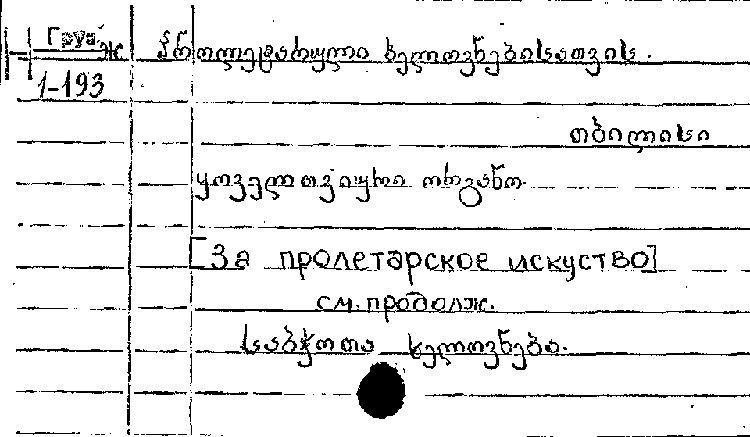 Груз ж
1-193
პროლეტარული ხელოვნებისათვის.
თბილისი
ყოველთვიური ორგანო.
[За пролетарское искусство]
см. продолж.
საბჭოთა ხელოვნება.